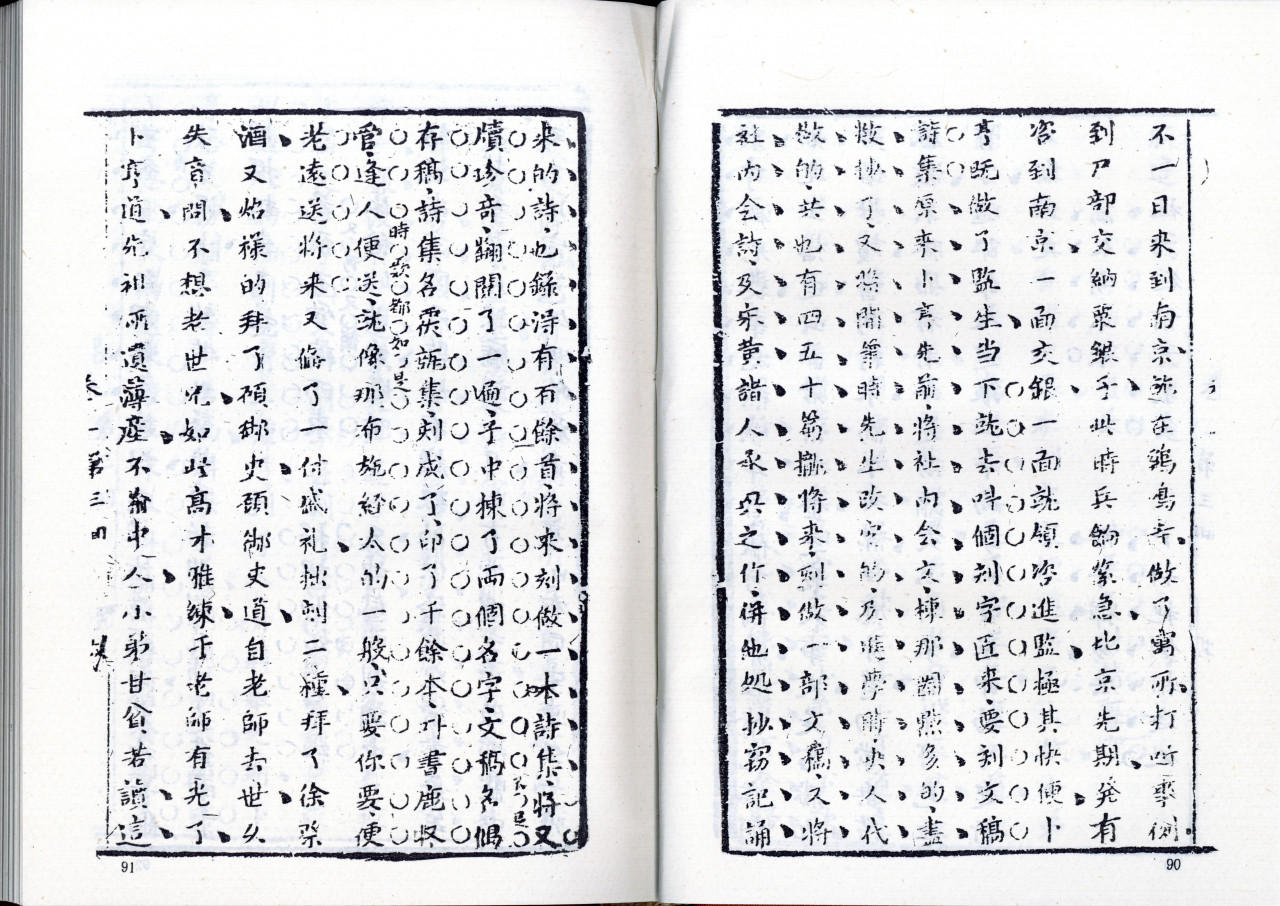 不一日来到南京就在鷄鳴寺做了寓所打听事例
到戸部交納粟銀乎此時兵餉緊急北京先期発有
咨到南京一面交銀一面就領咨進監極其快便卜
亨既做了監生当下就去呌個刻字匠来要刻文稿
詩集原来卜亨先前将社内会文揀那圈㸃多的盡
数抄了又将開筆時先生改定的及進學時央人代
做的共也有四五十篇攤将来刻做一部文稿又将
社内会詩及宋黄諧人承之作併他処抄窃記誦
来的詩也錄得有石餘首将来刻做一本詩集将又
不足
牘珍奇翻閱了一遍于中揀了両個名字文稿名
存稿詩集名集刻成了印了千餘本書
時欵都如是
官逢人便送就像那布施經太的一般只要你要便
老遠送将来又俻了一付盛礼拙刻二種拜了徐
酒又炤様的拜了顧御史顧御史道自老師去世乆
失音問不想老世兄如此高才雅練于老師有光了
卜亨道先祖所遺薄産不中人小弟甘貧若讀這
卷一　第三囬
91
90